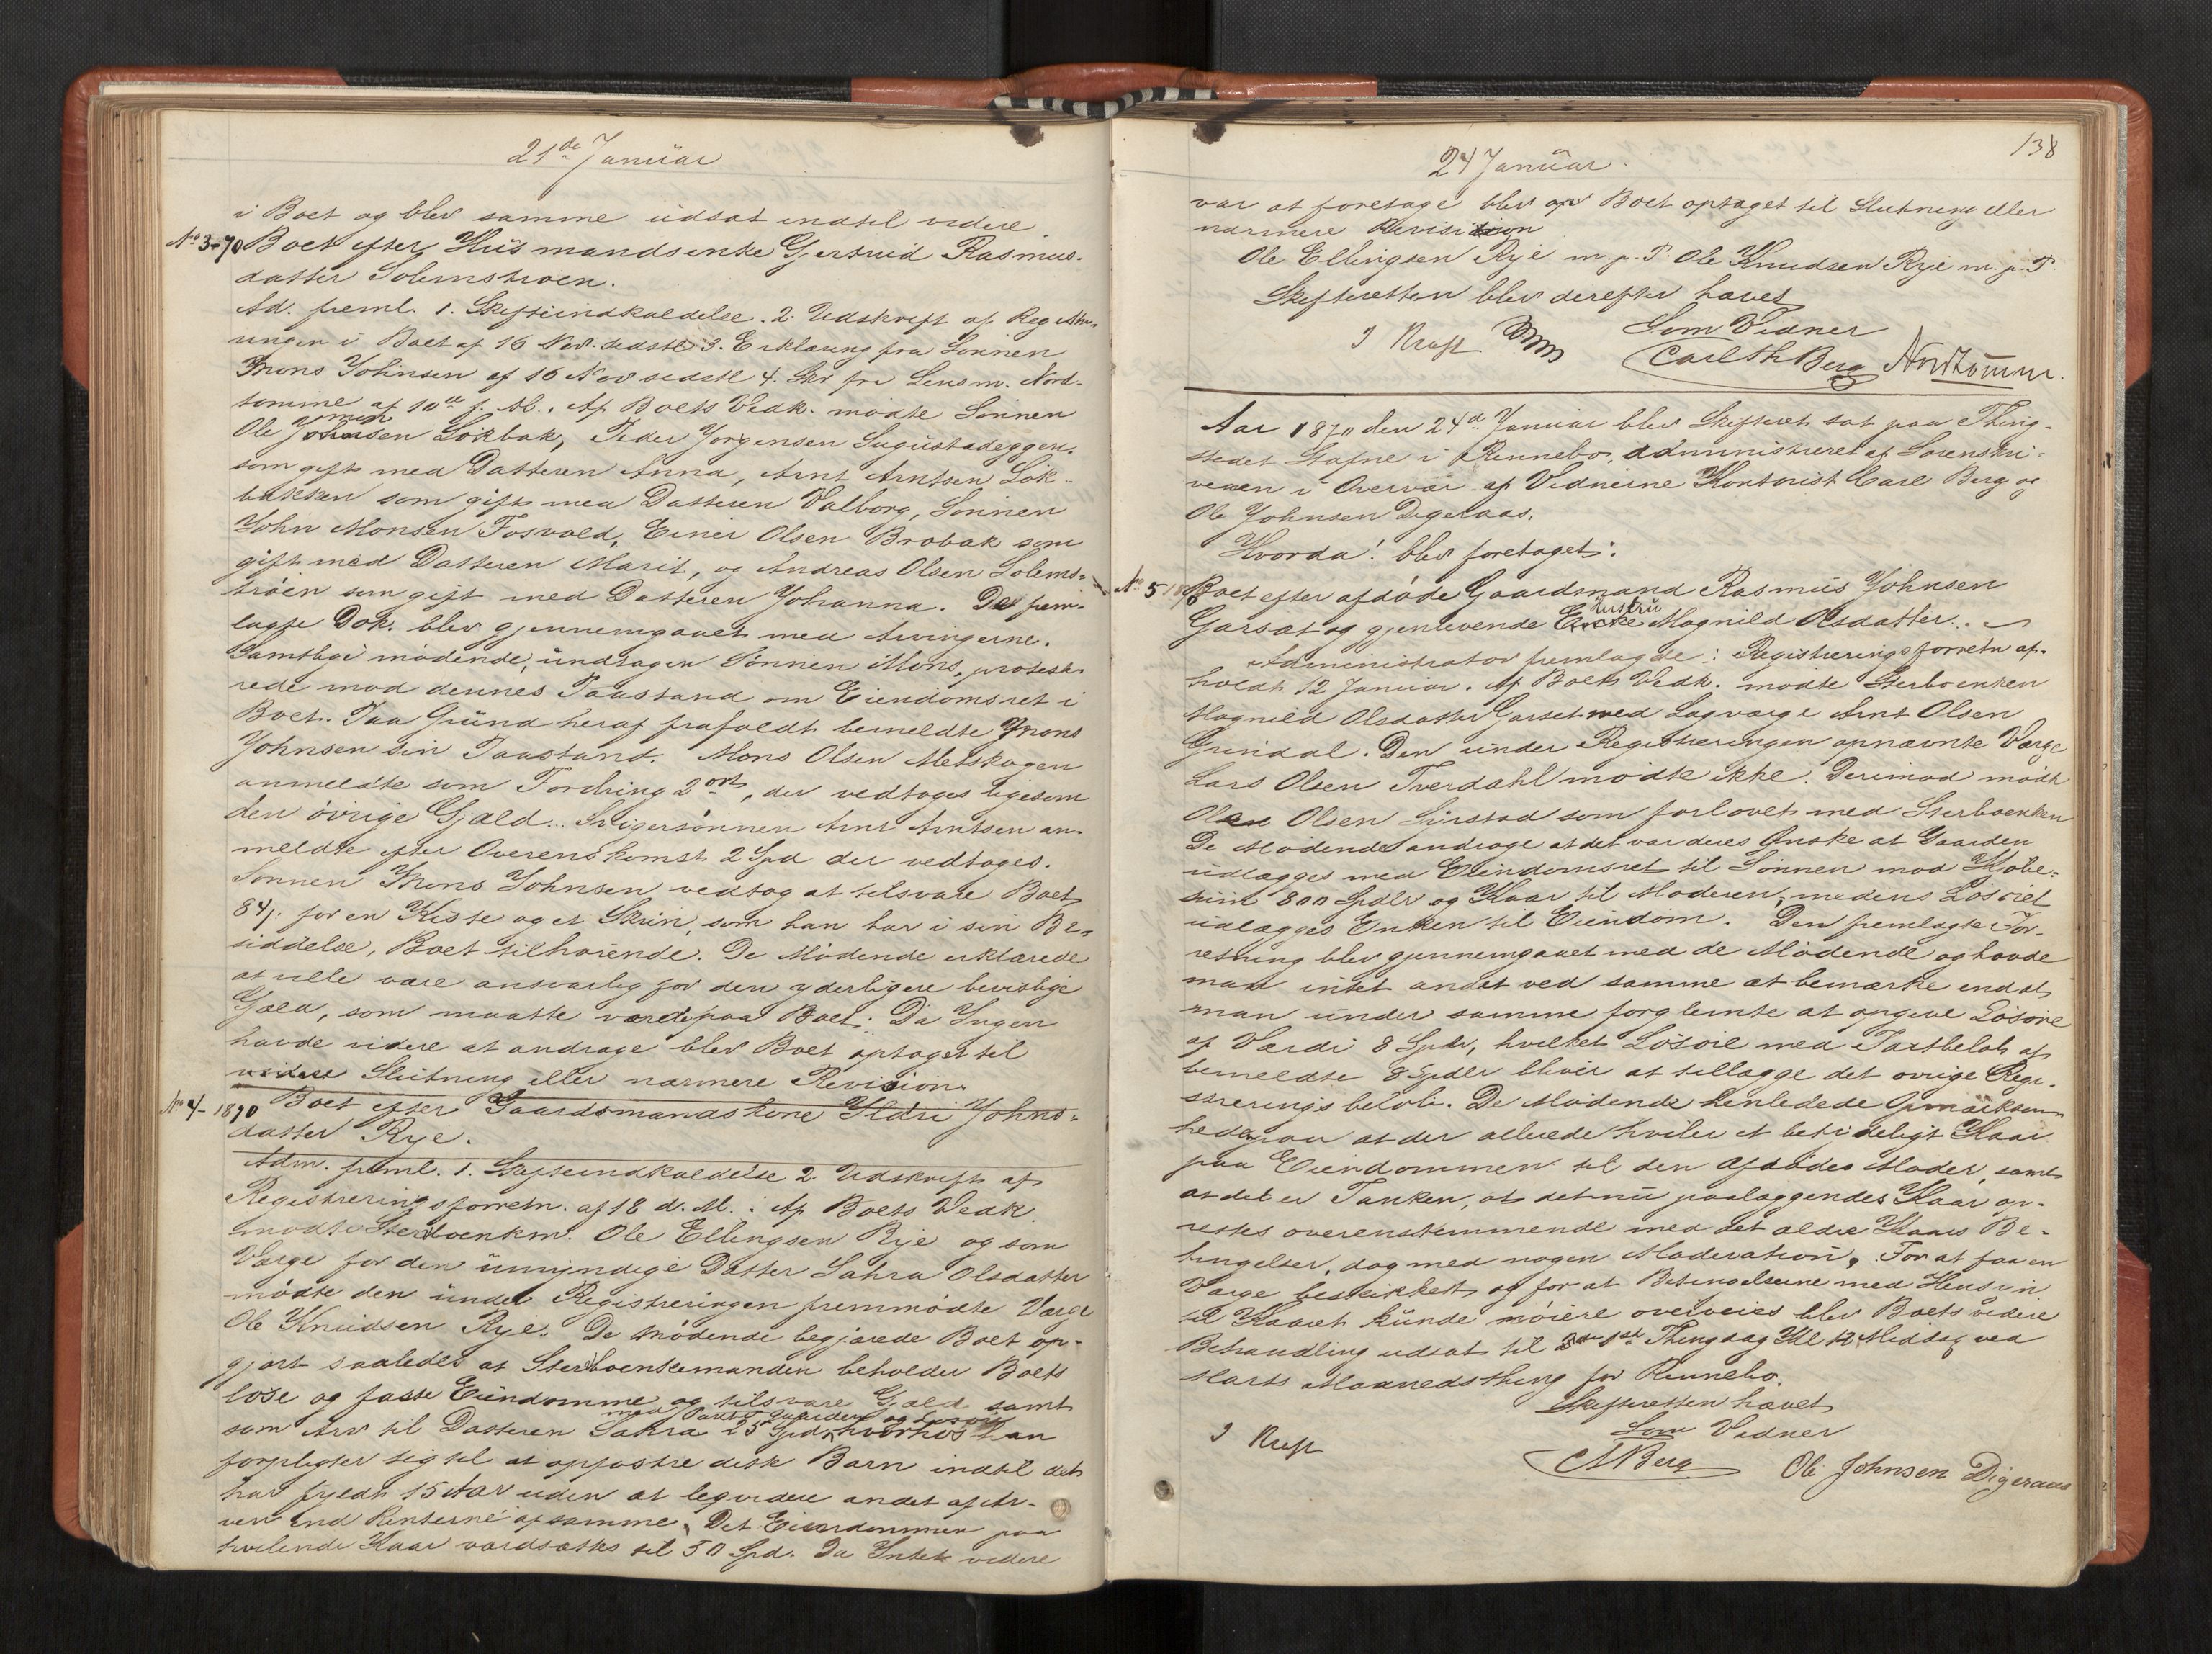 21de Januar
i Boet og blev samme udsat indtil videre
No 3-70 Boet efter Husmandsenke Gjertrud Rasmus-
datter Solemstroen.
Ad. freml. 1. Skifteindkaldelse. 2. Udskrift af Registre-
ringen i Boet af 16 Nov. sidstl 3. Erklæring fra Sønnen
Mons Johnsen af 16 Nov sidstl 4. Skr fra Lensm. Nord-
tømme af 10de f. M. Af Boets Vedk. mødte Sønnen
Ole Johnsen Løkbak, Peder Jørgensen
som gift med Datteren Anna, Arnt Arntsen Løk-
bakken som gift med Datteren Valborg, Sønnen
John Monsen Fosvold, Einer Olsen Brobak som
gift med Datteren Marit, og Andreas Olsen Solems-
trøen som gift med Datteren Johanna. De frem-
lagte Dok. blev gjennemgaaet med Arvingerne.
Samtlige mødende, undtagen Sønnen Mons, proteste-
rede mod dennes Paastand om Eiendomsret i
Boet. Paa Grund heraf frafaldt bemeldte Mons
Johnsen sin Paastand. Mons Olsen Metskogen
anmeldte som Fordring 2 ort, der vedtoges ligesom
den øvrige Gjæld. Svigersønnen Arnt Arntsen an-
meldte efter Overenskomst 2 Spd der vedtoges.
Sønnen Mons Johnsen vedtog at tilsvare Boet
84 ß for en Kiste og et Skrin, som han har i sin Be-
siddelse, Boet tilhørende. De Mødende erklærede
at ville være ansvarlig for den yderligere bevislige
Gjæld, som maatte være paa Boet. Da Ingen
havde videre at andrage blev Boet optaget til
videre Slutning eller nærmere Revision.
No 4-1870 Boet efter Gaardsmandskone Ildri Johns-
datter Rye.
Adm. freml. 1. Skifteindkaldelse 2. Udskrift af
Registreringsforretn. af 18 d. M. Af Boets Vedk.
mødte Sterboenkem. Ole Ellingsen Rye og som
Værge for den umyndige Datter Sahra Olsdatter
mødte den under Registreringen fremmødte Værge
Ole Knudsen Rye. De Mødende begjærede Boet op-
gjort saaledes at Sterboenkemanden beholder Boets
løse og faste Eiendomme og tilsvare Gjæld samt
med Pant i Gaarden og Løsøre
som Arv til Datteren Sahra 25 Spd, hvorhos han
forpligter sig til at opfostre disse Barn indtil det
har fyldt 15 Aar uden at begvidere andet af Ar-
ven end Renterne af samme. Det Eiendommen paa
hvilende Kaar værdsattes til 50 Spd. Da Intet videre
138
24 Januar.
var at foretage blev Boet optaget til Slutning eller
nærmere Revision
Ole Ellingsen Rye m. p. P. Ole Knudsen Rye m. p. P
Skifteretten blev derefter hævet
Som Vidner
J Kraft
Carl Th Berg Nordtømme.
Aar 1870 den 24de Januar blev Skifteret sat paa Thing-
stedet Stafne i Rennebo, administreret af Sorenskri-
veren i Overvær af Vidnerne Kontorist Carl Berg og
Ole Johnsen Digeraas.
Hvorda! blev foretaget:
No 5 1870 Boet efter afdøde Gaardmand Rasmus Johnsen
Hustru
Garsat og gjenlevende Enke Magnild Olsdatter.
Administrator fremlagde: Registreringsforretn af-
holdt 12 Januar. Af Boets Vedk. mødte Sterboenken
Magnild Olsdatter Garset med Lagværge Arnt Olsen
Grindal. Den under Registreringen opnævnte Værge
Lars Olsen Tverdahl mødte ikke. Derimod mødte
Olsen som forlovet med Sterboenken
De Mødende androge at det var deres Ønske at Gaarden
udlægges med Eiendomsret til Sønnen mod Kjøbe-
sum 800 Spdlr og Kaar til Moderen, medens Løsøret
udlægges Enken til Eiendom. Den fremlagte For-
retning blev gjennemgaaet med de Mødende og havde
man intet andet ved samme at bemærke end at
man under samme forglemte at opgive Løsøre
af Værdi 8 Spdr, hvilket Løsøre med Taxtbeløb af
bemeldte 8 Spdlr bliver at tillægge det øvrige Regi-
streringsbeløb. De Mødende henledede Opmærksom-
heden paa at der allerede hviler et betydeligt Kaar
paa Eiendommen til den Afdødes Moder, samt
at det er Tanken, at det nu paalæggendes Kaar op-
rettes overensstemmende med det ældre Kaars Be-
tingelser, dog med nogen Moderation. For at faa en
Værge beskikket og for at Betingelserne med Hensyn
til Kaaret kunde nøiere overveies blev Boets videre
Behandling udsat til 1ste Thingdag Kl 12 Middag ved
Marts Maanedsthing for Rennebo.
Skifteretten hævet
Som Vidner
J Kraft
C Th Berg Ole Johnsen Digeraas